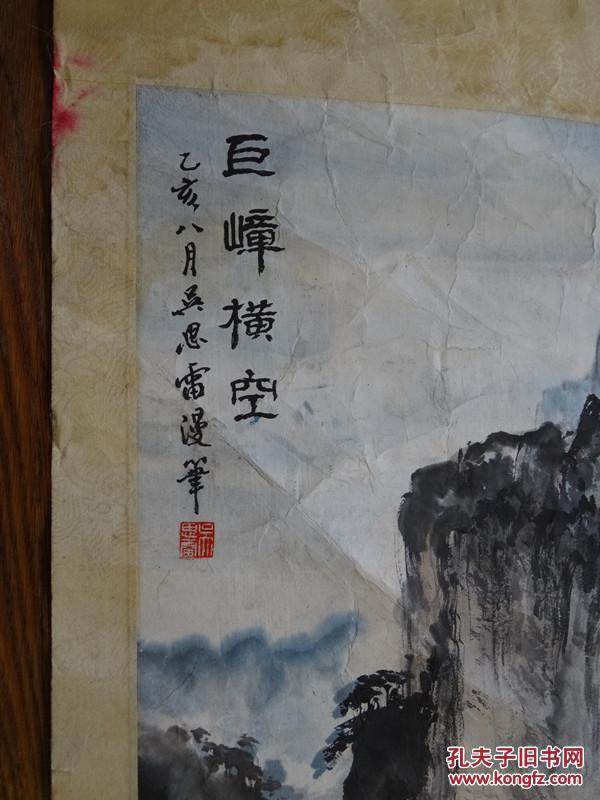 巨嶂横空
乙亥八月吴思雷漫筆
吴思雷
孔夫子旧书网
www.kongfz.com